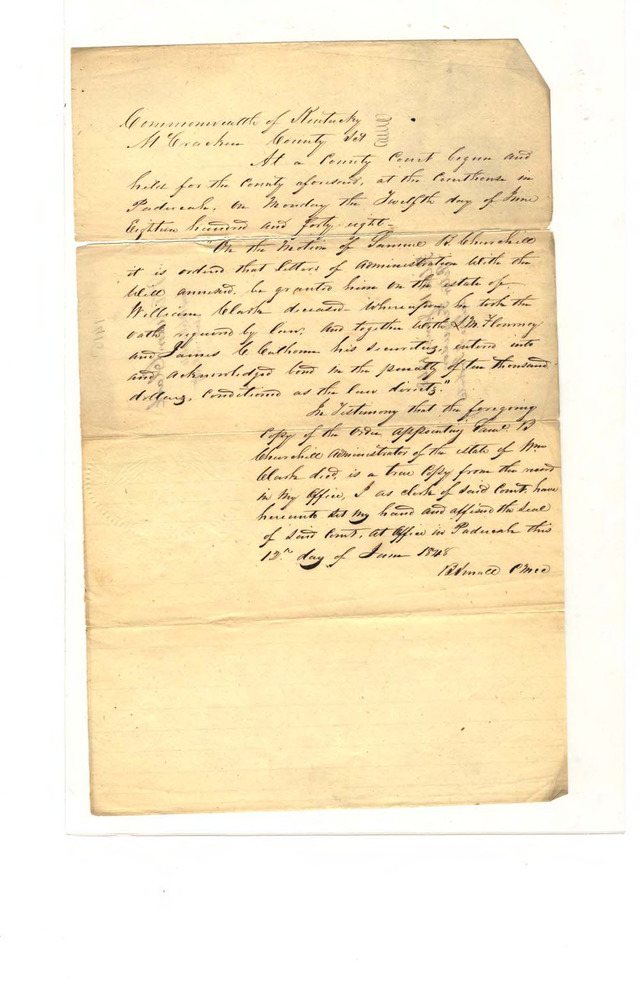 Commonwealth of Kentucky
McCracken County Sct
At a County Court begun and
held for the County aforesaid, at the Courthouse in
Paducah, on Monday the Twelfth day of June
Eighteen hundred and forty-eight-
"On the Motion of Samuel B. Churchill
it is ordered that letters of Administration with the
Will annexed, be granted him on the estate of
William Clark deceased Whereupon he took the
oath required by law; and together with L M Flournoy
and James C Calhoun his securities, entered into
and acknowledged bond in the penalty of ten thousand
dollars, conditioned as the law directs."
In Testimony that the foregoing
Copy of the Order appointing Saml. B
Churchill Administrator of the estate of Wm
Clark decd. is a true Copy from the record
in my Office, I as clerk of said Court have
hereunto set my hand and affixed the seal
of said Court, at Office in Paducah this
12th day of June 1848